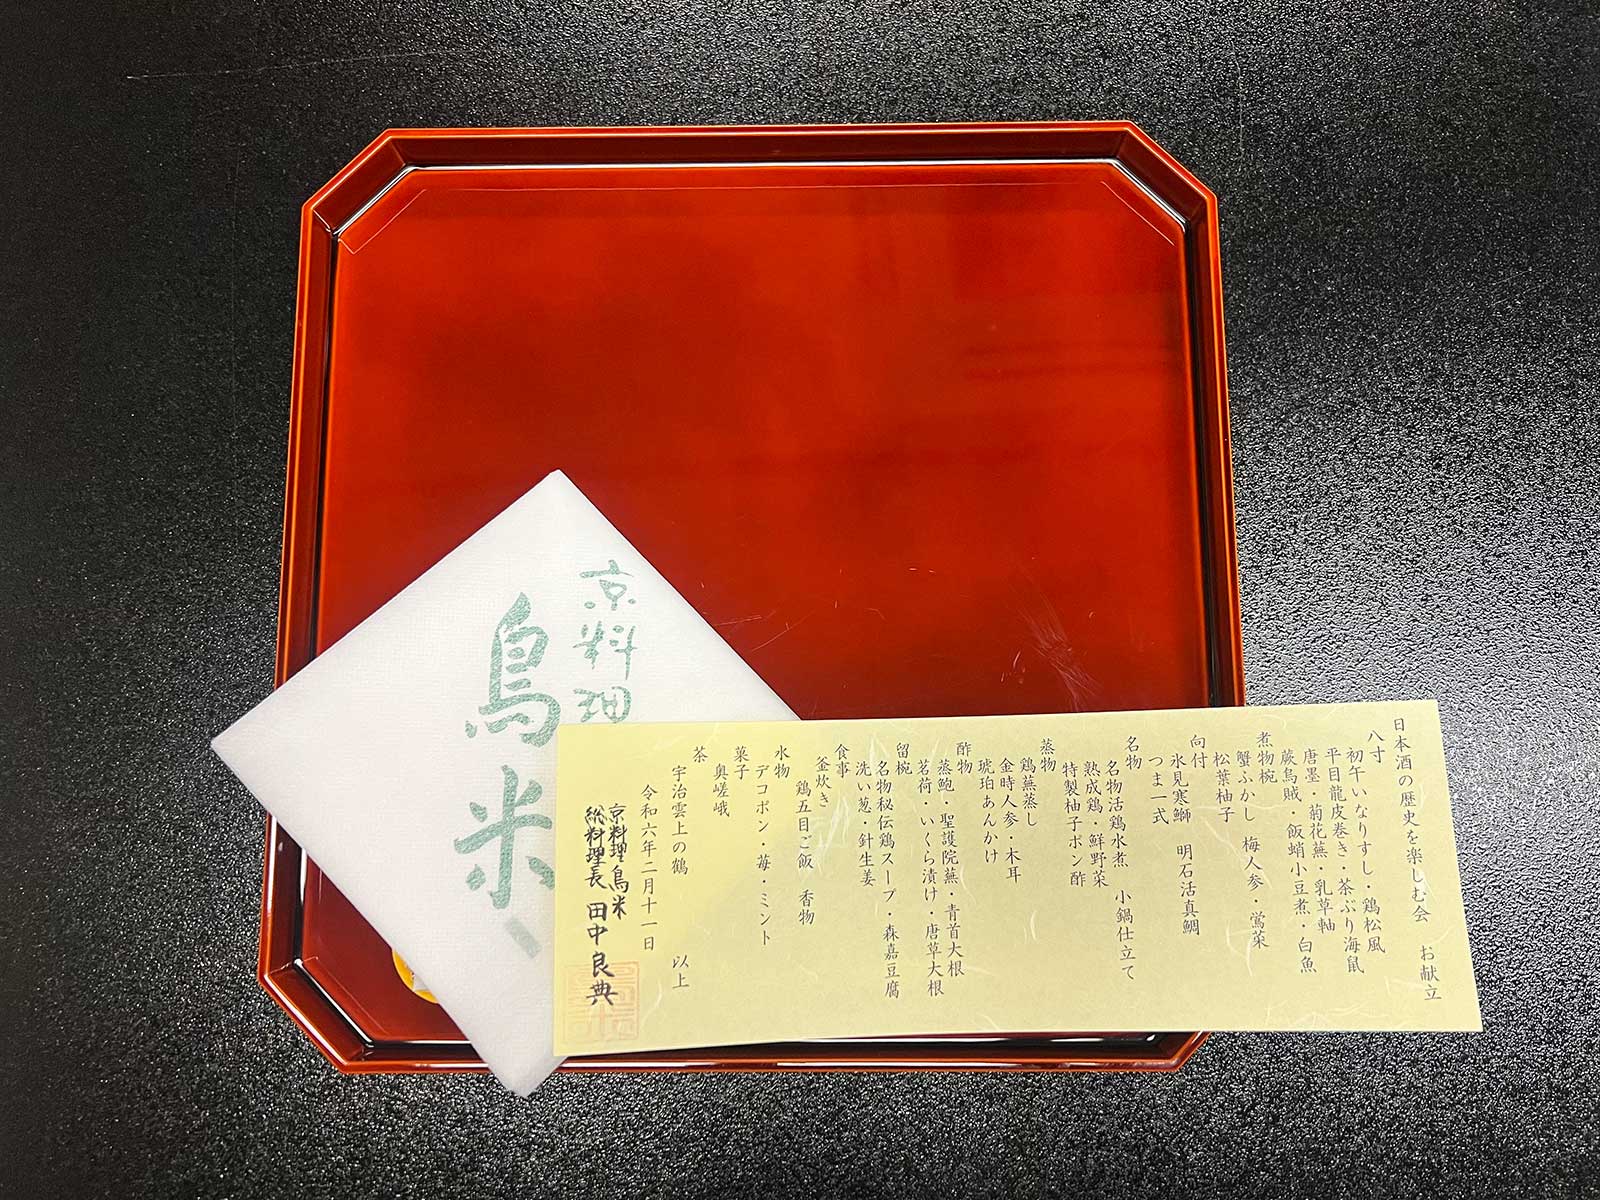 日本酒の歴史を楽しむ会 お献立
八寸
初午いなりすし・鶏松風
平目龍皮巻き・茶ぶり海鼠
唐墨・菊花蕪・乳草軸
蕨烏賊・飯蛸小豆煮・白魚
煮物椀
蟹ふかし 梅人参・鶯菜
松葉柚子
向付
氷見寒鰤 明石活真鯛
つま一式
名物
名物活鶏水煮 小鍋仕立て
熟成鶏・鮮野菜
特製柚子ポン酢
蒸物
鶏蕪蒸し
金時人参・木耳
琥珀あんかけ
酢物
蒸鮑・聖護院蕪・青首大根
茗荷・いくら漬け・唐草大根
留椀
名物秘伝鶏スープ・森嘉豆腐
洗い葱・針生姜
食事
釜炊き
鶏五目ご飯 香物
水物
デコポン・苺・ミント
菓子
奥嵯峨
茶
宇治雲上の鶴 以上
令和六年二月十一日
京料理鳥米
総料理長 田中良典
京料理
鳥米